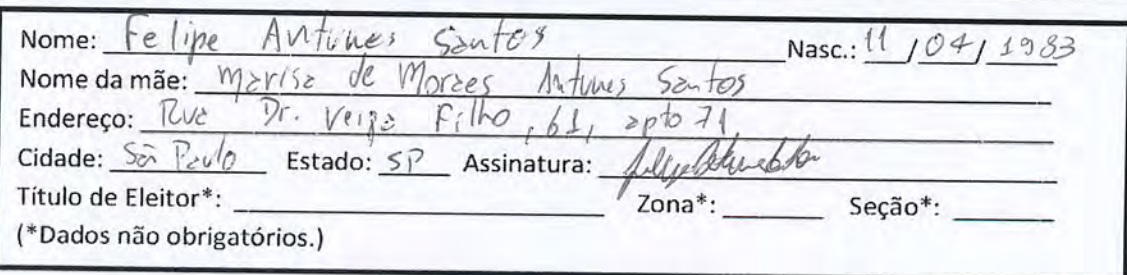 Nome: Felipe Antunes Santos Nasc.: 11/04/1983
Nome da mãe: Marisa de Moraes Antunes Santos
Endereço: Rua Dr. Veiga Filho, 61, apto 71
Cidade: São Paulo Estado: SP Assinatura:
Título de Eleitor*: Zona*: Seção*:
(*Dados não obrigatórios.)